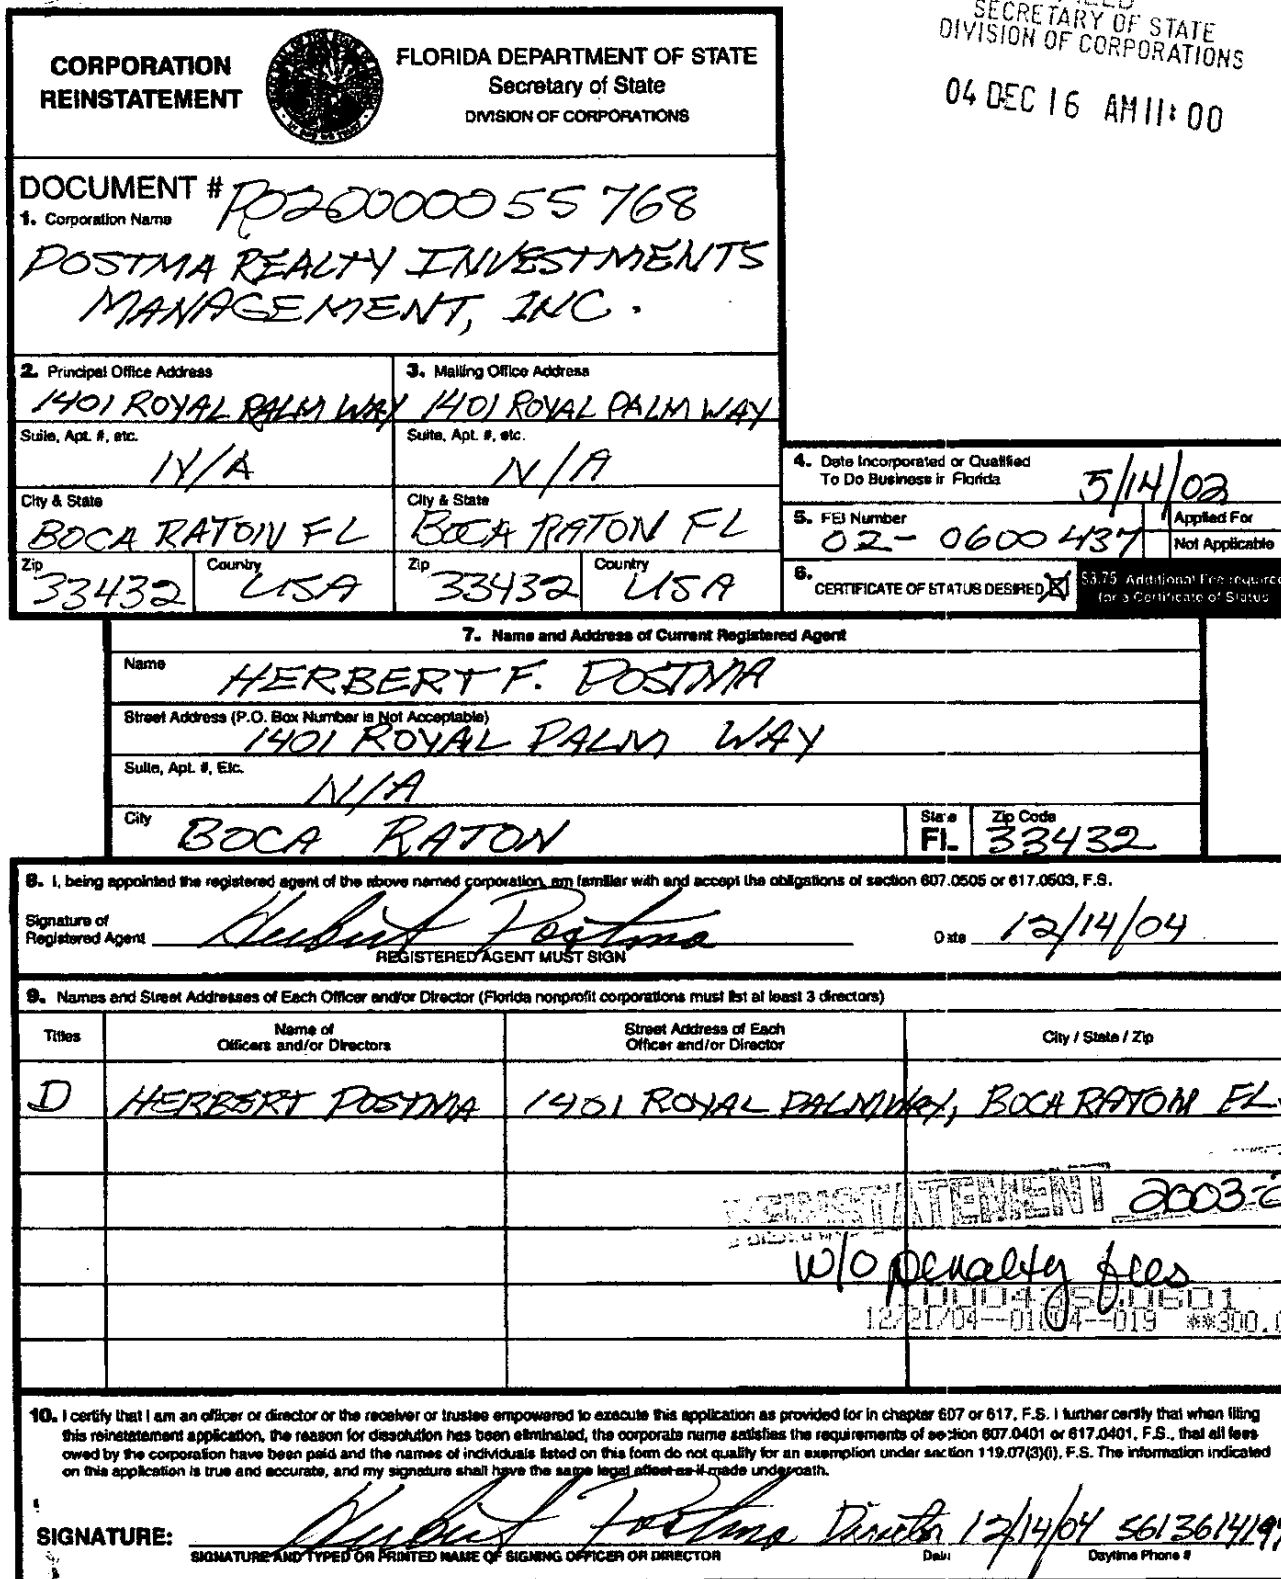 SECRETARY OF STATE
DIVISION OF CORPORATIONS
04 DEC 16 AM 11:00
CORPORATION
REINSTATEMENT
FLORIDA DEPARTMENT OF STATE
Secretary of State
DIVISION OF CORPORATIONS
DOCUMENT # P02000055768
1. Corporation Name
POSTMA REALTY INVESTMENTS
MANAGEMENT, INC.
2. Principal Office Address
1401 ROYAL PALM WAY
3. Mailing Office Address
1401 ROYAL PALM WAY
Suite, Apt. #, etc.
N/A
Suite, Apt. #, etc.
N/A
City & State
BOCA RATON FL
City & State
BOCA RATON FL
Zip
33432
Country
USA
Zip
33432
Country
USA
4. Date Incorporated or Qualified
To Do Business in Florida
5/14/02
5. FEI Number
02-0600437
Applied For
Not Applicable
6. CERTIFICATE OF STATUS DESIRED X
Additional Fee required
for a Certificate of Status
7. Name and Address of Current Registered Agent
Name
HERBERT F. POSTMA
Street Address (P.O. Box Number is Not Acceptable)
1401 ROYAL PALM WAY
Suite, Apt. #, Etc.
N/A
City
BOCA RATON
State
FL
Zip Code
33432
8. I, being appointed the registered agent of the above named corporation, am familiar with and accept the obligations of section 607.0505 or 617.0503, F.S.
Signature of
Registered Agent Herbert Postma
REGISTERED AGENT MUST SIGN
Date 12/14/04
9. Names and Street Addresses of Each Officer and/or Director (Florida nonprofit corporations must list at least 3 directors)
Titles
Name of
Officers and/or Directors
Street Address of Each
Officer and/or Director
City / State / Zip
D HERBERT POSTMA 1401 ROYAL PALM WAY, BOCA RATON FL
REINSTATEMENT 2003-2
w/o penalty fees
12/21/04--019 **300.0
10. I certify that I am an officer or director or the receiver or trustee empowered to execute this application as provided for in chapter 607 or 617, F.S. I further certify that when filing
this reinstatement application, the reason for dissolution has been eliminated, the corporate name satisfies the requirements of section 607.0401 or 617.0401, F.S., that all fees
owed by the corporation have been paid and the names of individuals listed on this form do not qualify for an exemption under section 119.07(3)(i), F.S. The information indicated
on this application is true and accurate, and my signature shall have the same legal effect as if made under oath.
SIGNATURE: Herbert Postma Director 12/14/04 561361419
SIGNATURE AND TYPED OR PRINTED NAME OF SIGNING OFFICER OR DIRECTOR
Date
Daytime Phone #